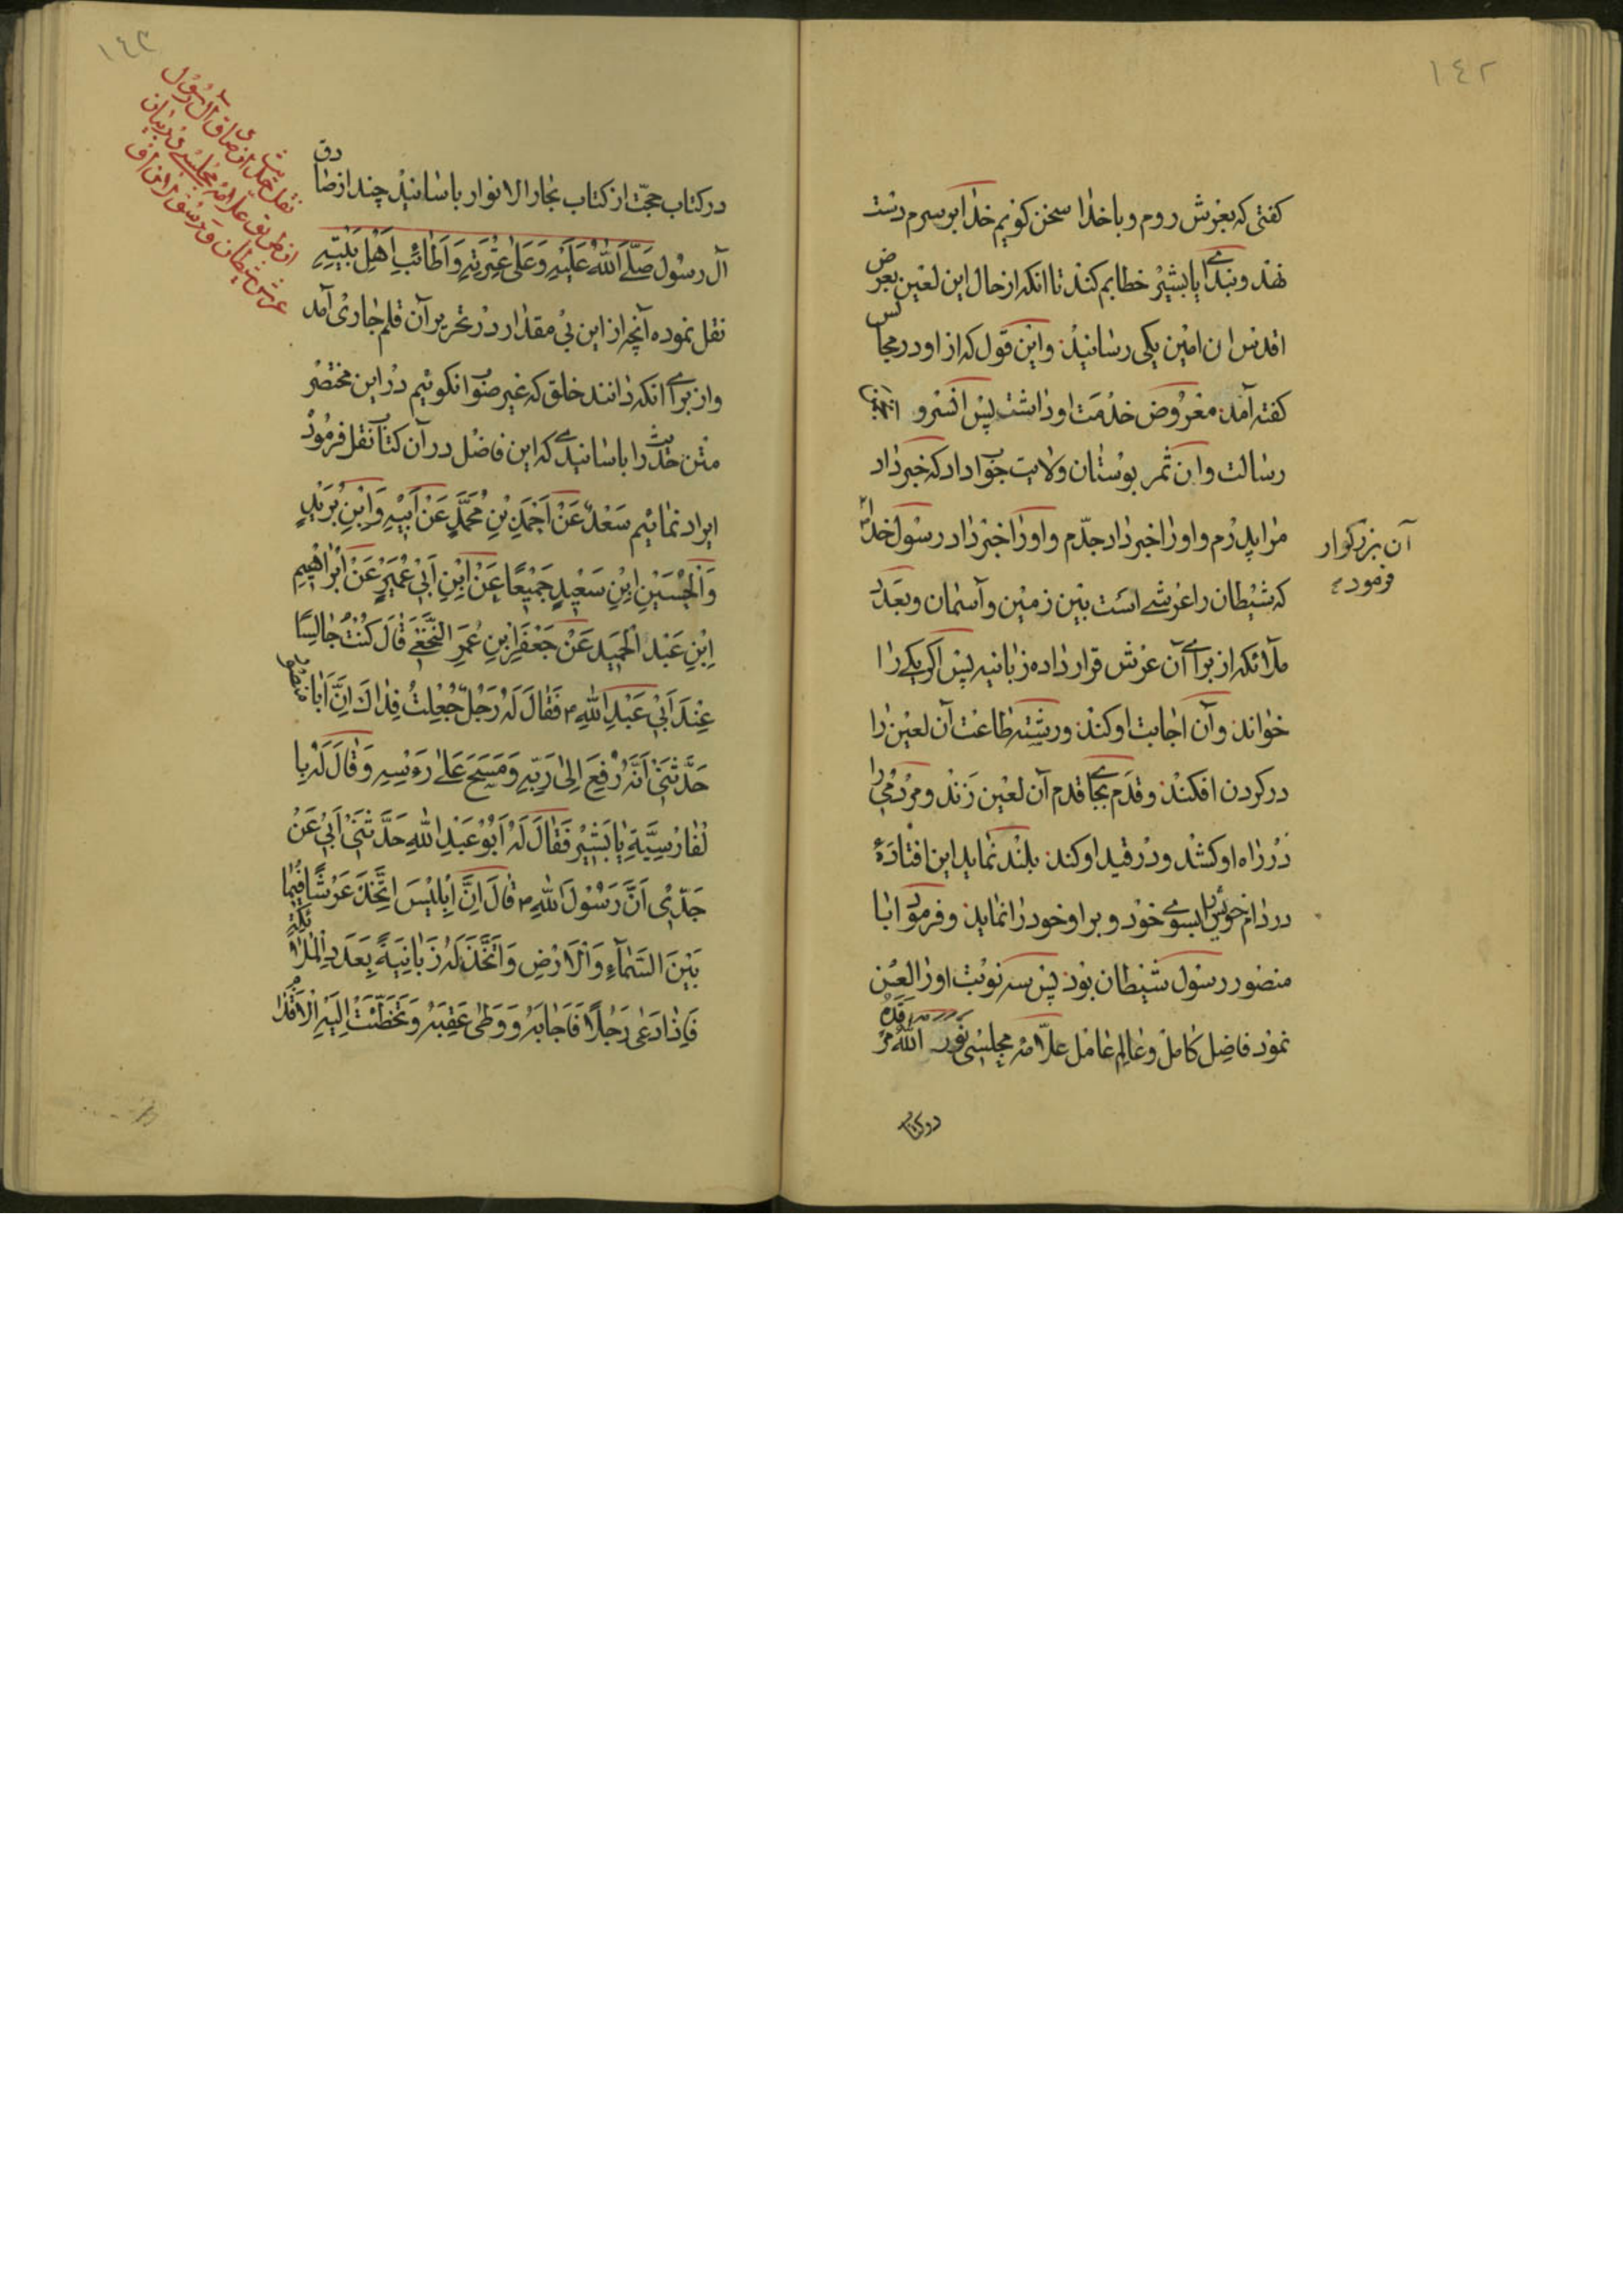 ١٤٢
كفتى كه بعرش روم وبا خدا سخن كويم خدا بر سرم دست
نهد وبنداى يا بشير خطابم كند تا انكه از حال اين لعين بعرض
اقدس ان امين يكى رسانيد واين قول كه از او در مجالس
كفته آمد معروض خدمت او داشت پس ان سرو
رسالت وان ثمر بوستان ولايت جواب داد كه خبر داد
مرا پدرم واورا خبر داد جدّم واورا خبر داد رسول خدا
آن بزركوار
فرمود
كه شيطان را عرشى است بين زمين وآسمان وبعدد
ملائكه از براى آن عرش قرار داده زبانيه پس اكر يكى را
خواند وآن اجابت او كند ورشته طاعت آن لعين را
در كردن افكند وقدم بجاى قدم آن لعين زند ومردمى را
در راه او كشد ودر قيد او كند بلند نمايد اين افتاده
در دام خويش را بسوى خود وبر او خود را نمايد وفرمود ابا
منصور رسول شيطان بود پس سه نوبت اورا لعن
نمود فاضل كامل وعالم عامل علّامه مجلسى نور الله مرقده
در كتاب
١٤٣
نقل حديث از صادق آل رسول
از طريق علامه مجلسى در بيان
عرش شيطان ورسول از آن
در كتاب حجّت از كتاب بحار الانوار باسانيد چند از صادق
آل رسول صَلَّى اللهُ عَلَيْهِ وَعَلى عِتْرَتِهِ وَاَطائِبِ اَهْلِ بَيْتِهِ
نقل نموده آنچه از اين بى مقدار در تحرير آن قلم جارى آمد
واز براى انكه دانند خلق كه غير صواب نكوئيم در اين مختصر
متن حديث را باسانيدى كه اين فاضل در آن كتاب نقل فرمود
ايراد نمائيم سَعْدٌ عَنْ اَحْمَدِ بْنِ مُحَمَّدٍ عَنْ اَبيْهِ وَابْنِ يَزيْدٍ
وَالْحُسَيْنِ ابْنِ سَعيْدٍ جَميْعًا عَنْ ابْنِ اَبيْ عُمَيْرٍ عَنْ اِبْراهيْمِ
اِبْنِ عَبْدِ الْحَميدِ عَنْ جَعْفَرِ ابْنِ عُمَرِ النَّخَعي قالَ كُنْتُ جالِسًا
عِنْدَ اَبيْ عَبْدِ اللهِ ع فَقالَ لَهُ رَجُلٌ جُعِلْتُ فِداكَ اِنَّ اَبا مَنصُورٍ
حَدَّثَنيْ اَنَّهُ رُفِعَ اِلى رَبِّهِ وَمَسَحَ عَلى رَءْسِهِ وَقالَ لَهُ بِا
لْفارْسِيَّةِ يا بَشيْرْ فَقالَ لَهُ اَبُوْ عَبْدِ اللهِ حَدَّثَنيْ اَبيْ عَنْ
جَدّيْ اَنَّ رَسُوْلَ اللهِ ص قالَ اِنَّ اِبْليْسَ اِتَّخَذَ عَرْشًا فيْما
بَيْنَ السَّمآءِ وَالْاَرْضِ وَاتَّخَذَ لَهُ زَبانِيَةً بِعَدَدِ الْمَلائِكَةِ
فَاِذا دَعى رَجُلًا فَاَجابَهُ وَوَطى عَقِبَهُ وَتَخَطَّتْ اِلَيْهِ الْاَقْدام